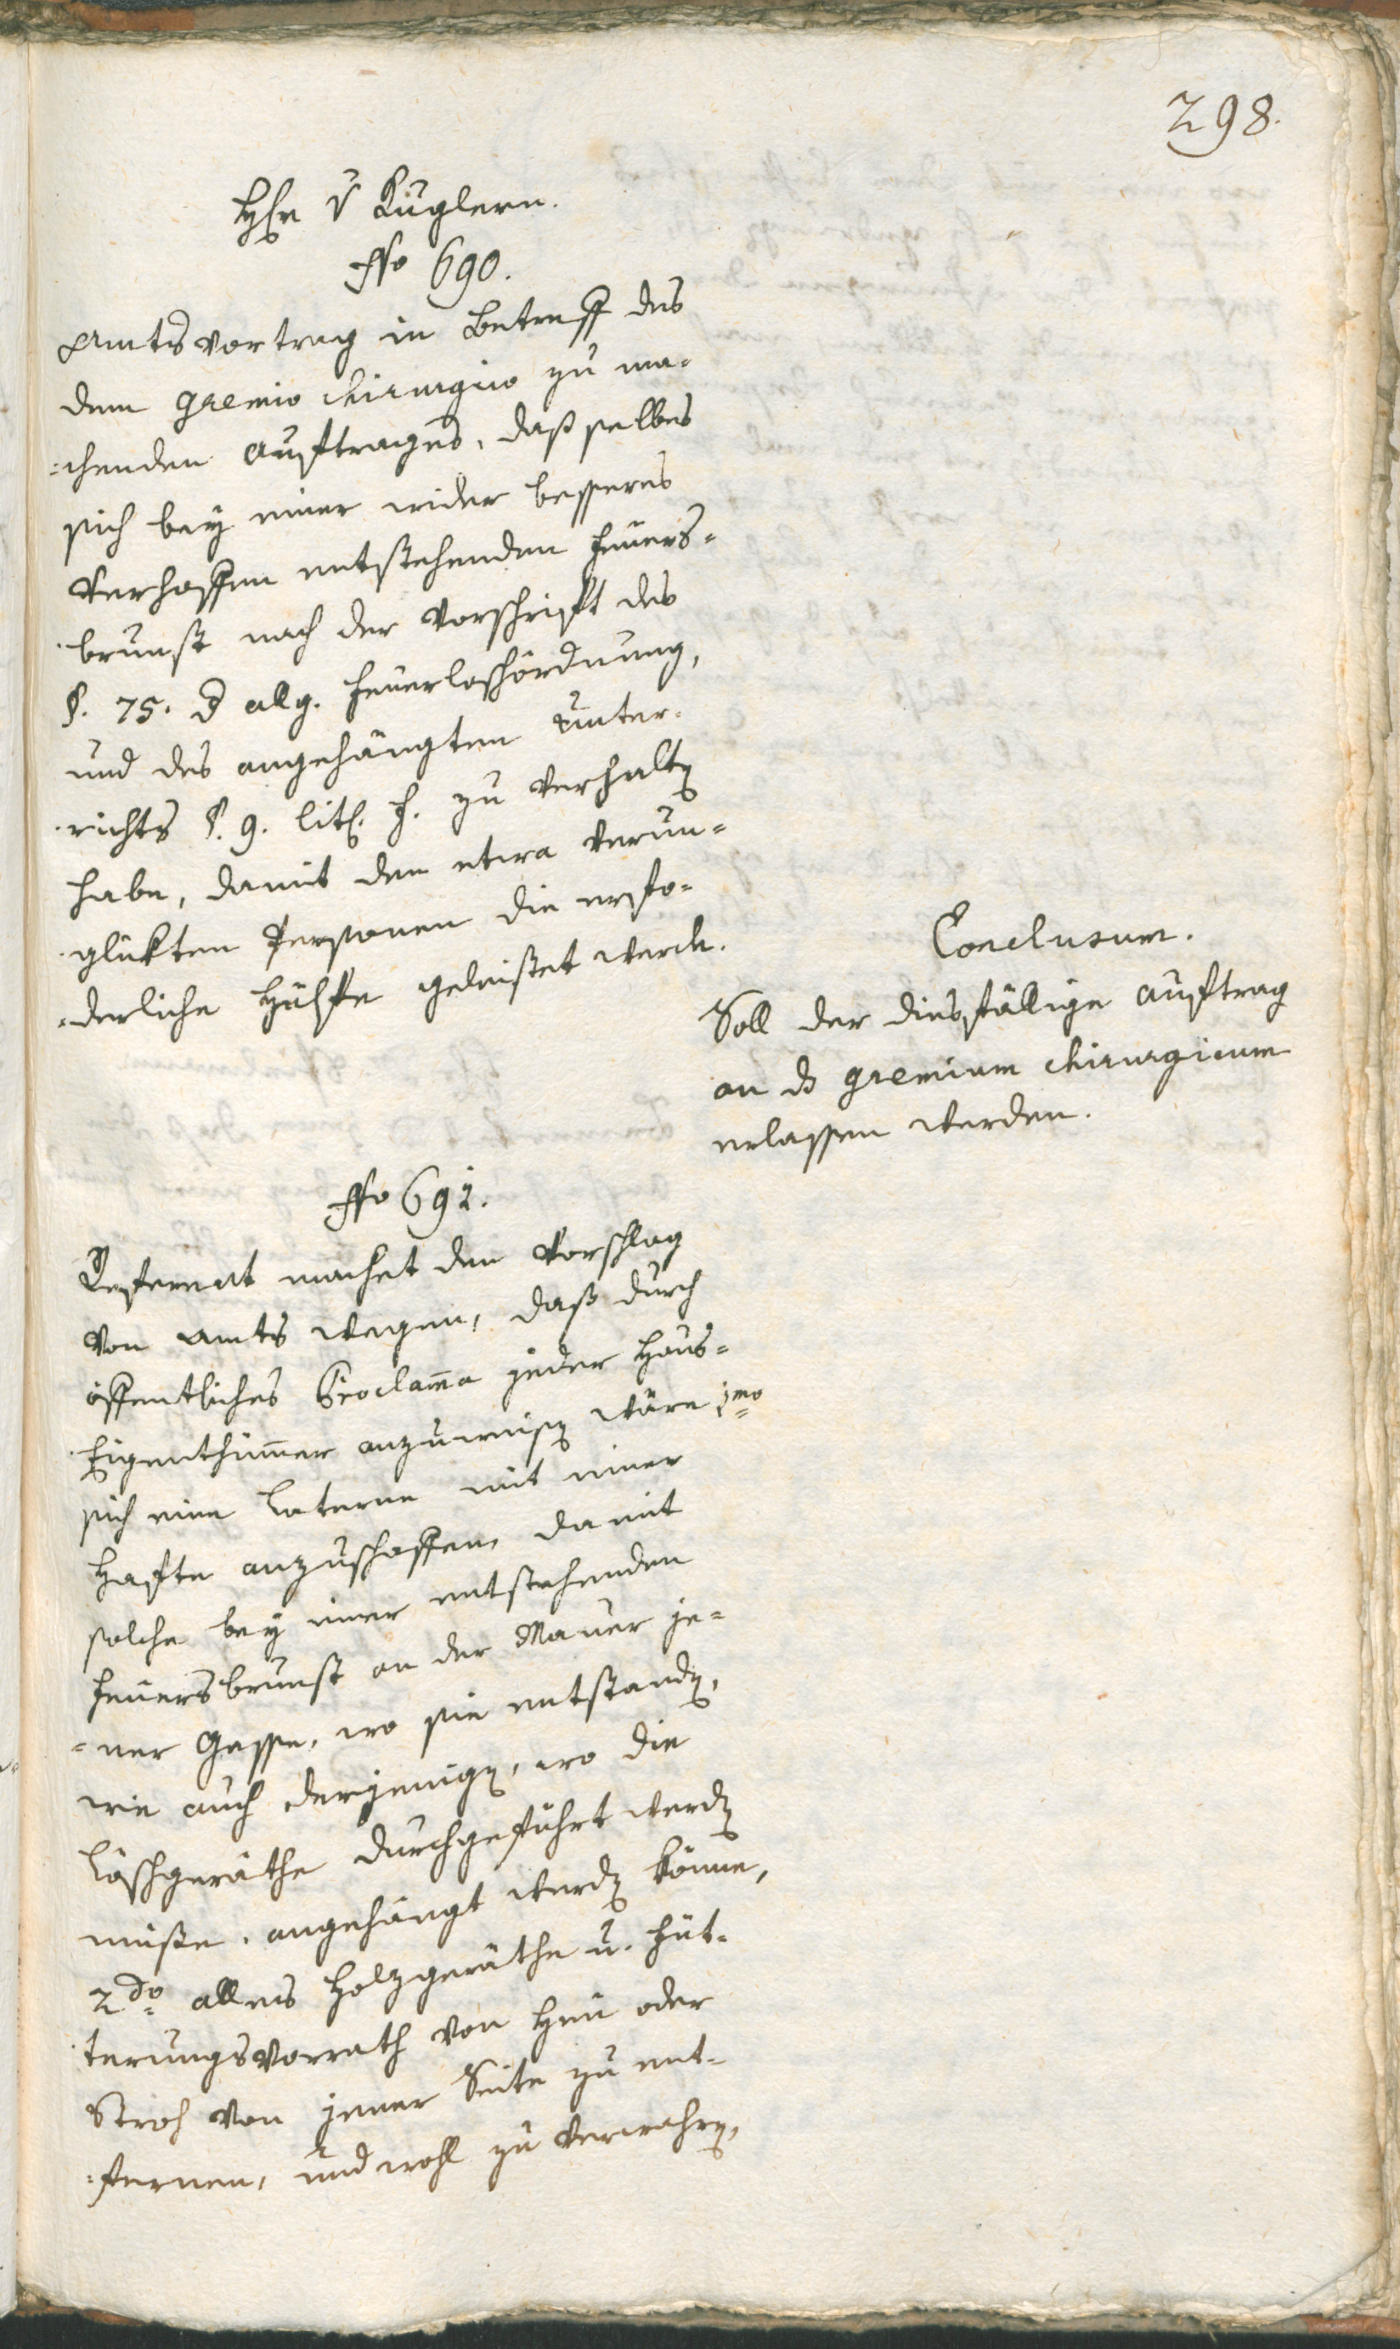 298.
H\hen v Kuglern.
Nro 690.
Amtsvortrag in Betreff des
dem gremio chirurgico zu ma-
=chenden Auftrages, daß selbes
sich bey einer wider besseres
Verhoffen entstehenden Feuers-
brunst nach der Vorschrift des
§. 75. d allg. Feuerloschordnung,
und des angehängten Unter-
richts §. 9. lit. f. zu verhalten
habe, damit den etwa verun-
glükten Personen die erfo-
=derliche Hülffe geleistet werde.
Conclusum.
Soll der diesfällige Auftrag
an ds gremium chirurgicum
erlassen werden.
Nro 691.
Referent machet den Vorschlag
von Amts wegen, daß durch
öffentliches Proclama jeder Haus-
Eigenthümer anzuweisen wäre 1mo
sich eine Laterne mit einer
Hafte anzuschaffen, damit
solche bey einer entstehenden
Feuersbrunst an der Mauer je-
=ner Gasse, wo sie entstanden,
wie auch derjenigen, wo die
Löschgeräthe durchgeführt werden
müßen, angehängt werden könne,
2do alles Holzgeräthe u. Füt-
terungsvorrath von Heu oder
Stroh von jener Seite zu ent-
=fernen, und wohl zu verwahren,